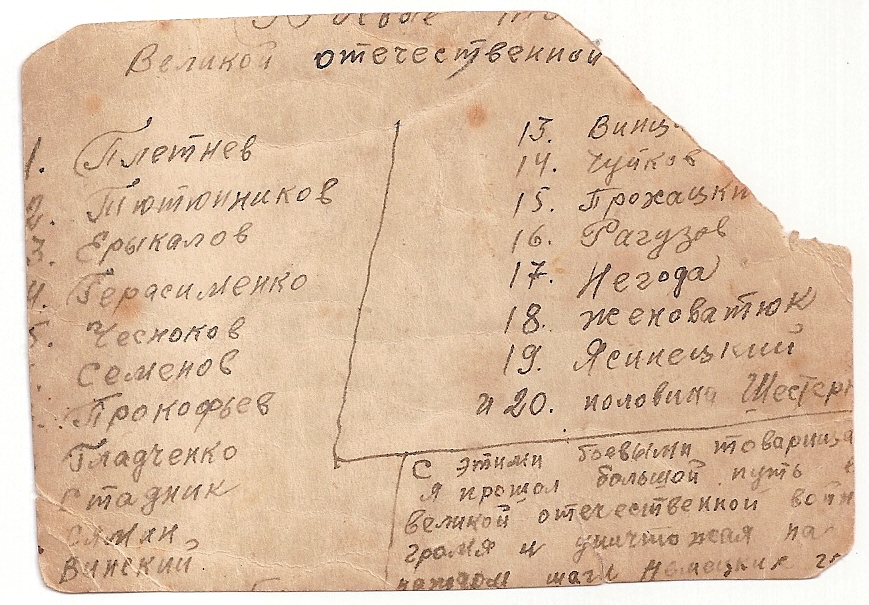 Великой отечественной
1. Плетнев
2. Тютюнников
3. Ерыкалов
4. Герасименко
5. Чесноков
Семенов
Прокофьев
Гладченко
Стадник
Винский
13. Винц
14. Чуйков
15. Прохацки
16. Рагузов
17. Негода
18. Женоватюк
19. Ясинецкий
и 20. половина Шестер
С этими боевыми товарища
я прошол большой путь в
великой отечественной войн
громя и уничтожая на
каждом шагу немецких